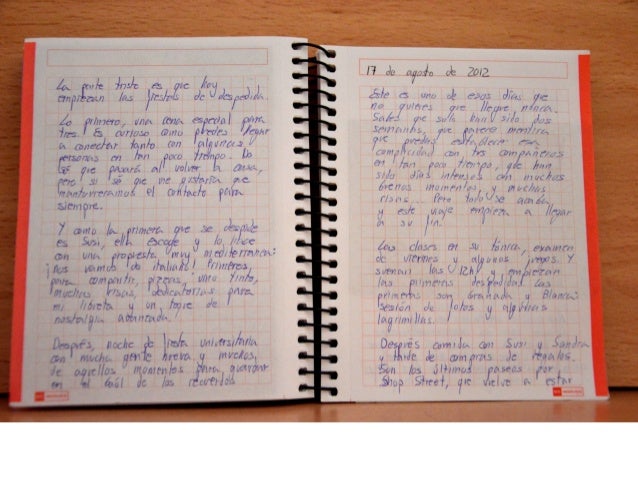 La parte triste es que hoy
empiezan las fiestas de despedida.
Lo primero, una cena especial para
tres. Es curioso cómo puedes llegar
a conectar tanto con algunas
personas en tan poco tiempo. No
sé qué pasará al volver a casa,
pero sí sé que me gustaría que
mantuvieramos el contacto para
siempre.
Y como la primera que se despide
es Susi, ella escoge y lo hace
con una propuesta muy mediterranea:
¡nos vamos de italiano! Primeros,
para compartir, pizzas, vino tinto,
muchas risas, dedicatorias para
mi libreta y un toque de
nostalgia avanzada.
Después, noche de fiesta universitaria
con mucha gente nueva y muchos,
de aquellos momentos para guardar
en el baúl de los recuerdos
17 de agosto de 2012
Este es uno de esos días que
no quieres que llegue nunca.
Sabes que solo han sido dos
semanas, que parece mentira
que puedas establecer esa
complicidad con tus compañeros
en tan poco tiempo, que han
sido días intensos con muchos
buenos momentos y muchas
risas... Pero todo se acaba
y este viaje empieza a llegar
a su fin.
Las clases en su tónica, examen
de viernes y algunos juegos. Y
suenan las 12h y empiezan
las primeras despedidas. Las
primeras son Granada y Blanca:
sesión de fotos y algunas
lagrimillas.
Después comida con Susi y Sandra
y tarde de compras de regalos.
Son los últimos paseos por
Shop Street, que vuelve a estar